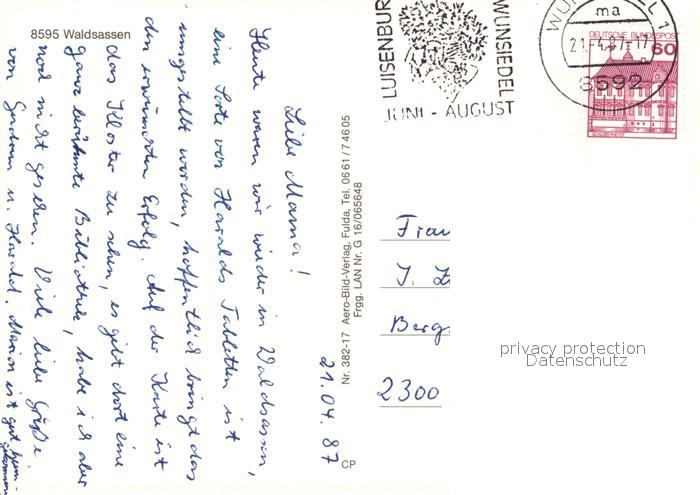 8595 Waldsassen
Liebe Mama!
Heute waren wir wieder in Waldsassen,
eine Sorte von Haralds Tabletten ist
umgestellt worden, hoffentlich bringt das
den erwünschten Erfolg. Auf der Karte ist
das Kloster zu sehen, es gibt dort eine
ganz berühmte Bibliothek, habe ich aber
noch nicht gesehen. Viele liebe Grüße
von Gudrun u. Harald. Marion ist gut heim-
gekommen.
21.04.87
Nr. 382-17 Aero-Bild-Verlag, Fulda, Tel. 06 61/7 46 05
Frgg. LAN Nr. G 16/065648
CP
LUISENBUR
WUNSIEDEL
JUNI - AUGUST
WUNSIEDEL 1
ma
21.-4.87-17
8592
DEUTSCHE BUNDESPOST
60
Frau
J. Z
Berg
2300
privacy protection
Datenschutz